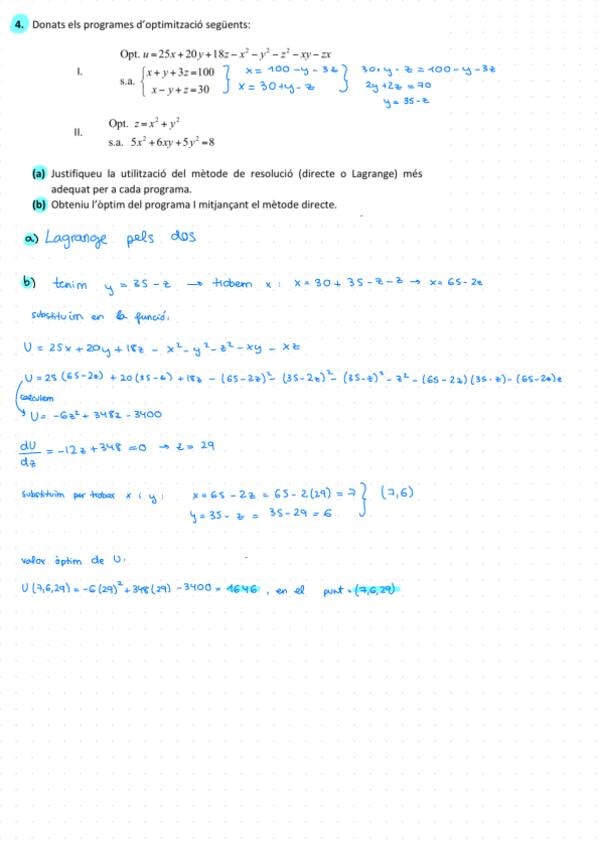 4. Donats els programes d'optimització següents:
Opt. u = 25x + 20y + 18z − x² − y² − z² − xy − zx
I. s.a. { x + y + 3z = 100 } x = 100 - y - 3z } 30 + y - z = 100 - y - 3z
x − y + z = 30 } x = 30 + y - z } 2y + 2z = 70
y = 35 - z
II. Opt. z = x² + y²
s.a. 5x² + 6xy + 5y² = 8
(a) Justifiqueu la utilització del mètode de resolució (directe o Lagrange) més
adequat per a cada programa.
(b) Obteniu l'òptim del programa I mitjançant el mètode directe.
a) Lagrange pels dos
b) tenim y = 35 - z → trobem x : x = 30 + 35 - z - z → x = 65 - 2z
substituim en la funció:
U = 25x + 20y + 18z - x² - y² - z² - xy - xz
U = 25 (65 - 2z) + 20 (35 - z) + 18z - (65 - 2z)² - (35 - 2z)² - (35 - z)² - z² - (65 - 2z)(35 - z) - (65 - 2z)z
calculem
U = -6z² + 348z - 3400
dU/dz = -12z + 348 = 0 → z = 29
substituim per trobar x i y: x = 65 - 2z = 65 - 2(29) = 7 } (7,6)
y = 35 - z = 35 - 29 = 6
valor òptim de U:
U (7,6,29) = -6(29)² + 348(29) - 3400 = 1646 , en el punt = (7,6,29)